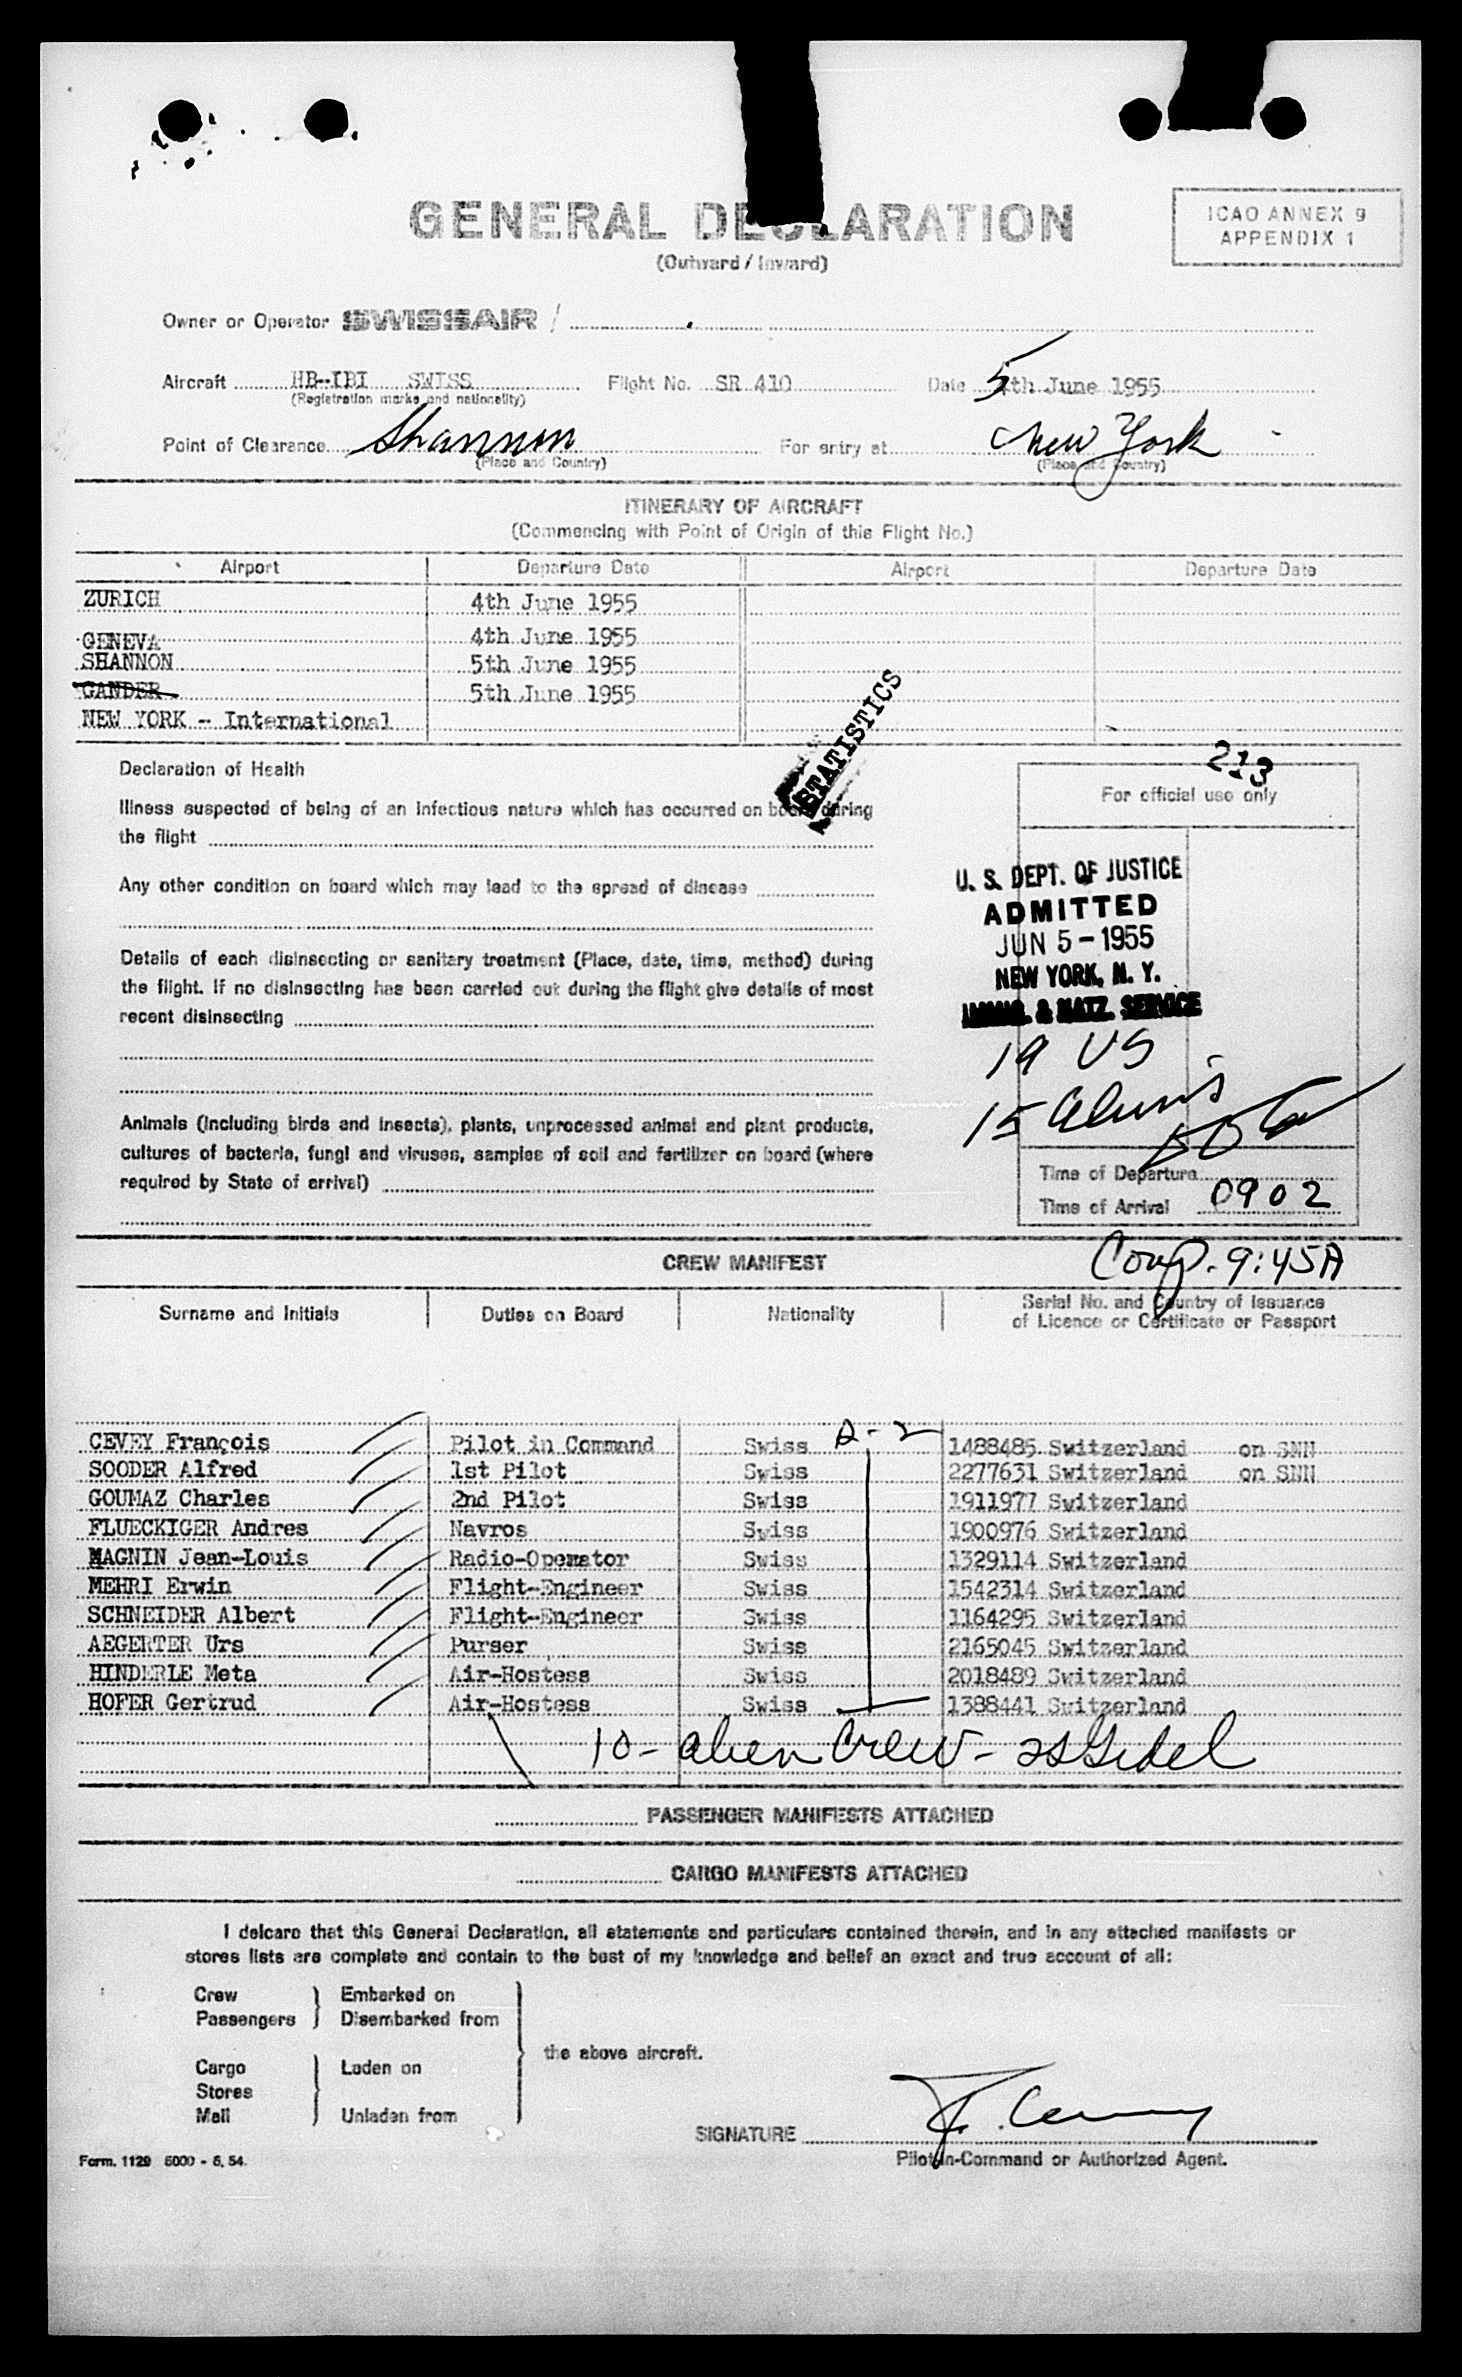 GENERAL DECLARATION
(Outward / Inward)
ICAO ANNEX 9
APPENDIX 1
Owner or Operator SWISSAIR /
Aircraft HB-IBI SWISS Flight No. SR 410 Date 5th June 1955
(Registration marks and nationality)
Point of Clearance Shannon For entry at New York
(Place and Country) (Place and Country)
ITINERARY OF AIRCRAFT
(Commencing with Point of Origin of this Flight No.)
Airport Departure Date Airport Departure Date
ZURICH 4th June 1955
GENEVA 4th June 1955
SHANNON 5th June 1955
GANDER 5th June 1955
NEW YORK - International
STATISTICS
213
Declaration of Health
For official use only
Illness suspected of being of an infectious nature which has occurred on board during
the flight
Any other condition on board which may lead to the spread of disease
U. S. DEPT. OF JUSTICE
ADMITTED
JUN 5 - 1955
NEW YORK, N. Y.
IMMIG. & NATZ. SERVICE
Details of each disinsecting or sanitary treatment (Place, date, time, method) during
the flight. If no disinsecting has been carried out during the flight give details of most
recent disinsecting
19 US
15 Aliens
Animals (including birds and insects), plants, unprocessed animal and plant products,
cultures of bacteria, fungi and viruses, samples of soil and fertilizer on board (where
required by State of arrival)
Time of Departure
Time of Arrival 0902
Comp. 9:45A
CREW MANIFEST
Surname and Initials Duties on Board Nationality Serial No. and Country of Issuance
of Licence or Certificate or Passport
CEVEY François Pilot in Command Swiss D-2 1488485 Switzerland on SNN
SOODER Alfred 1st Pilot Swiss 2277631 Switzerland on SNN
GOUMAZ Charles 2nd Pilot Swiss 1911977 Switzerland
FLUECKIGER Andres Navros Swiss 1900976 Switzerland
MAGNIN Jean-Louis Radio-Operator Swiss 1329114 Switzerland
MEHRI Erwin Flight-Engineer Swiss 1542314 Switzerland
SCHNEIDER Albert Flight-Engineer Swiss 1164295 Switzerland
AEGERTER Urs Purser Swiss 2165045 Switzerland
HINDERLE Meta Air-Hostess Swiss 2018489 Switzerland
HOFER Gertrud Air-Hostess Swiss 1388441 Switzerland
10 - alien Crew -
PASSENGER MANIFESTS ATTACHED
CARGO MANIFESTS ATTACHED
I delcare that this General Declaration, all statements and particulars contained therein, and in any attached manifests or
stores lists are complete and contain to the best of my knowledge and belief an exact and true account of all:
Crew Embarked on
Passengers Disembarked from
the above aircraft.
Cargo Laden on
Stores
Mail Unladen from
SIGNATURE F. Cevey
Pilot-in-Command or Authorized Agent.
Form. 1129 5000 - 6. 54.